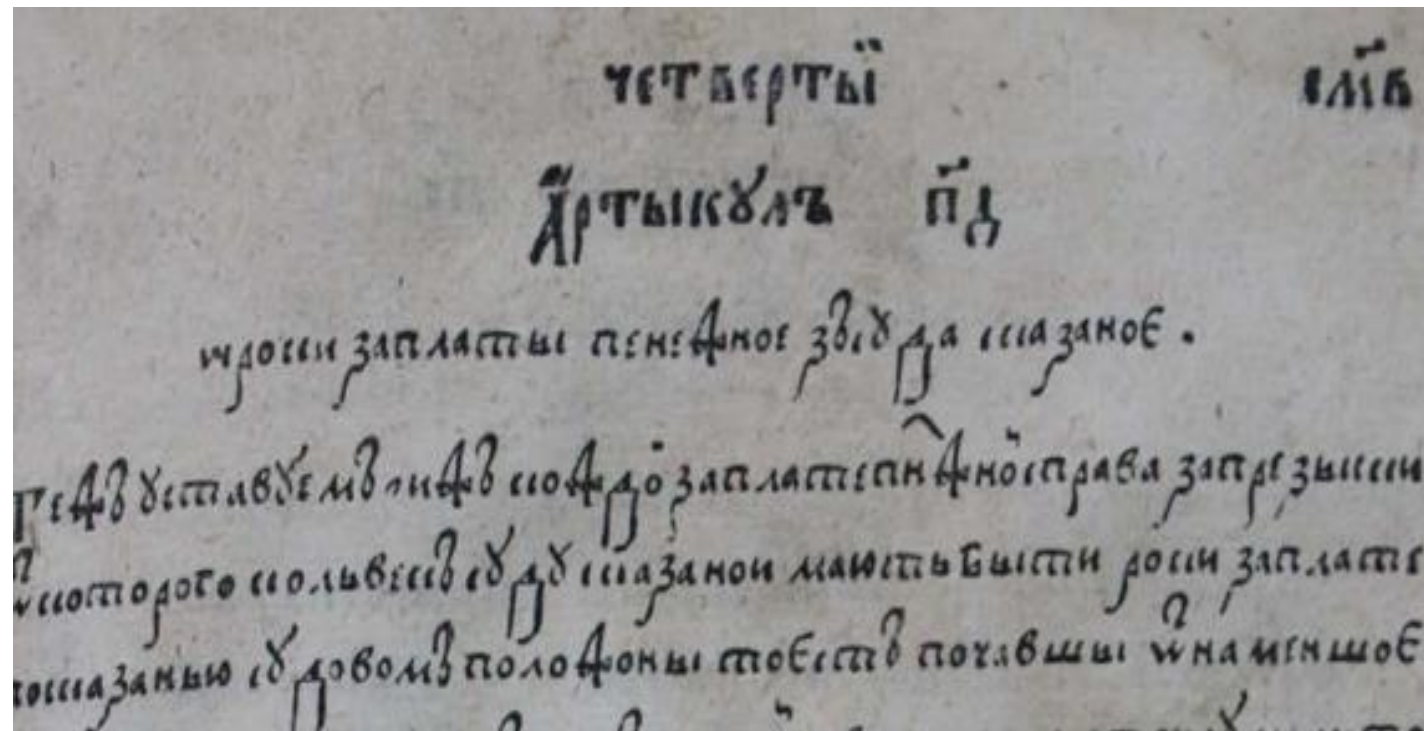 четвертыӥ см҃в
Артыкꙋлъ п҃д
ѡ роки заплаты пенежное зъ сꙋда сказаноє.
Тежъ ꙋставꙋемъ ижъ кождо заплате пнжноӥ справа за презыски
ѿ которого кольвекъ сꙋдꙋ сказанои мають быти роки заплате
по сказанью сꙋдовомъ положоны то єстъ почавшы ѿ наменшоє